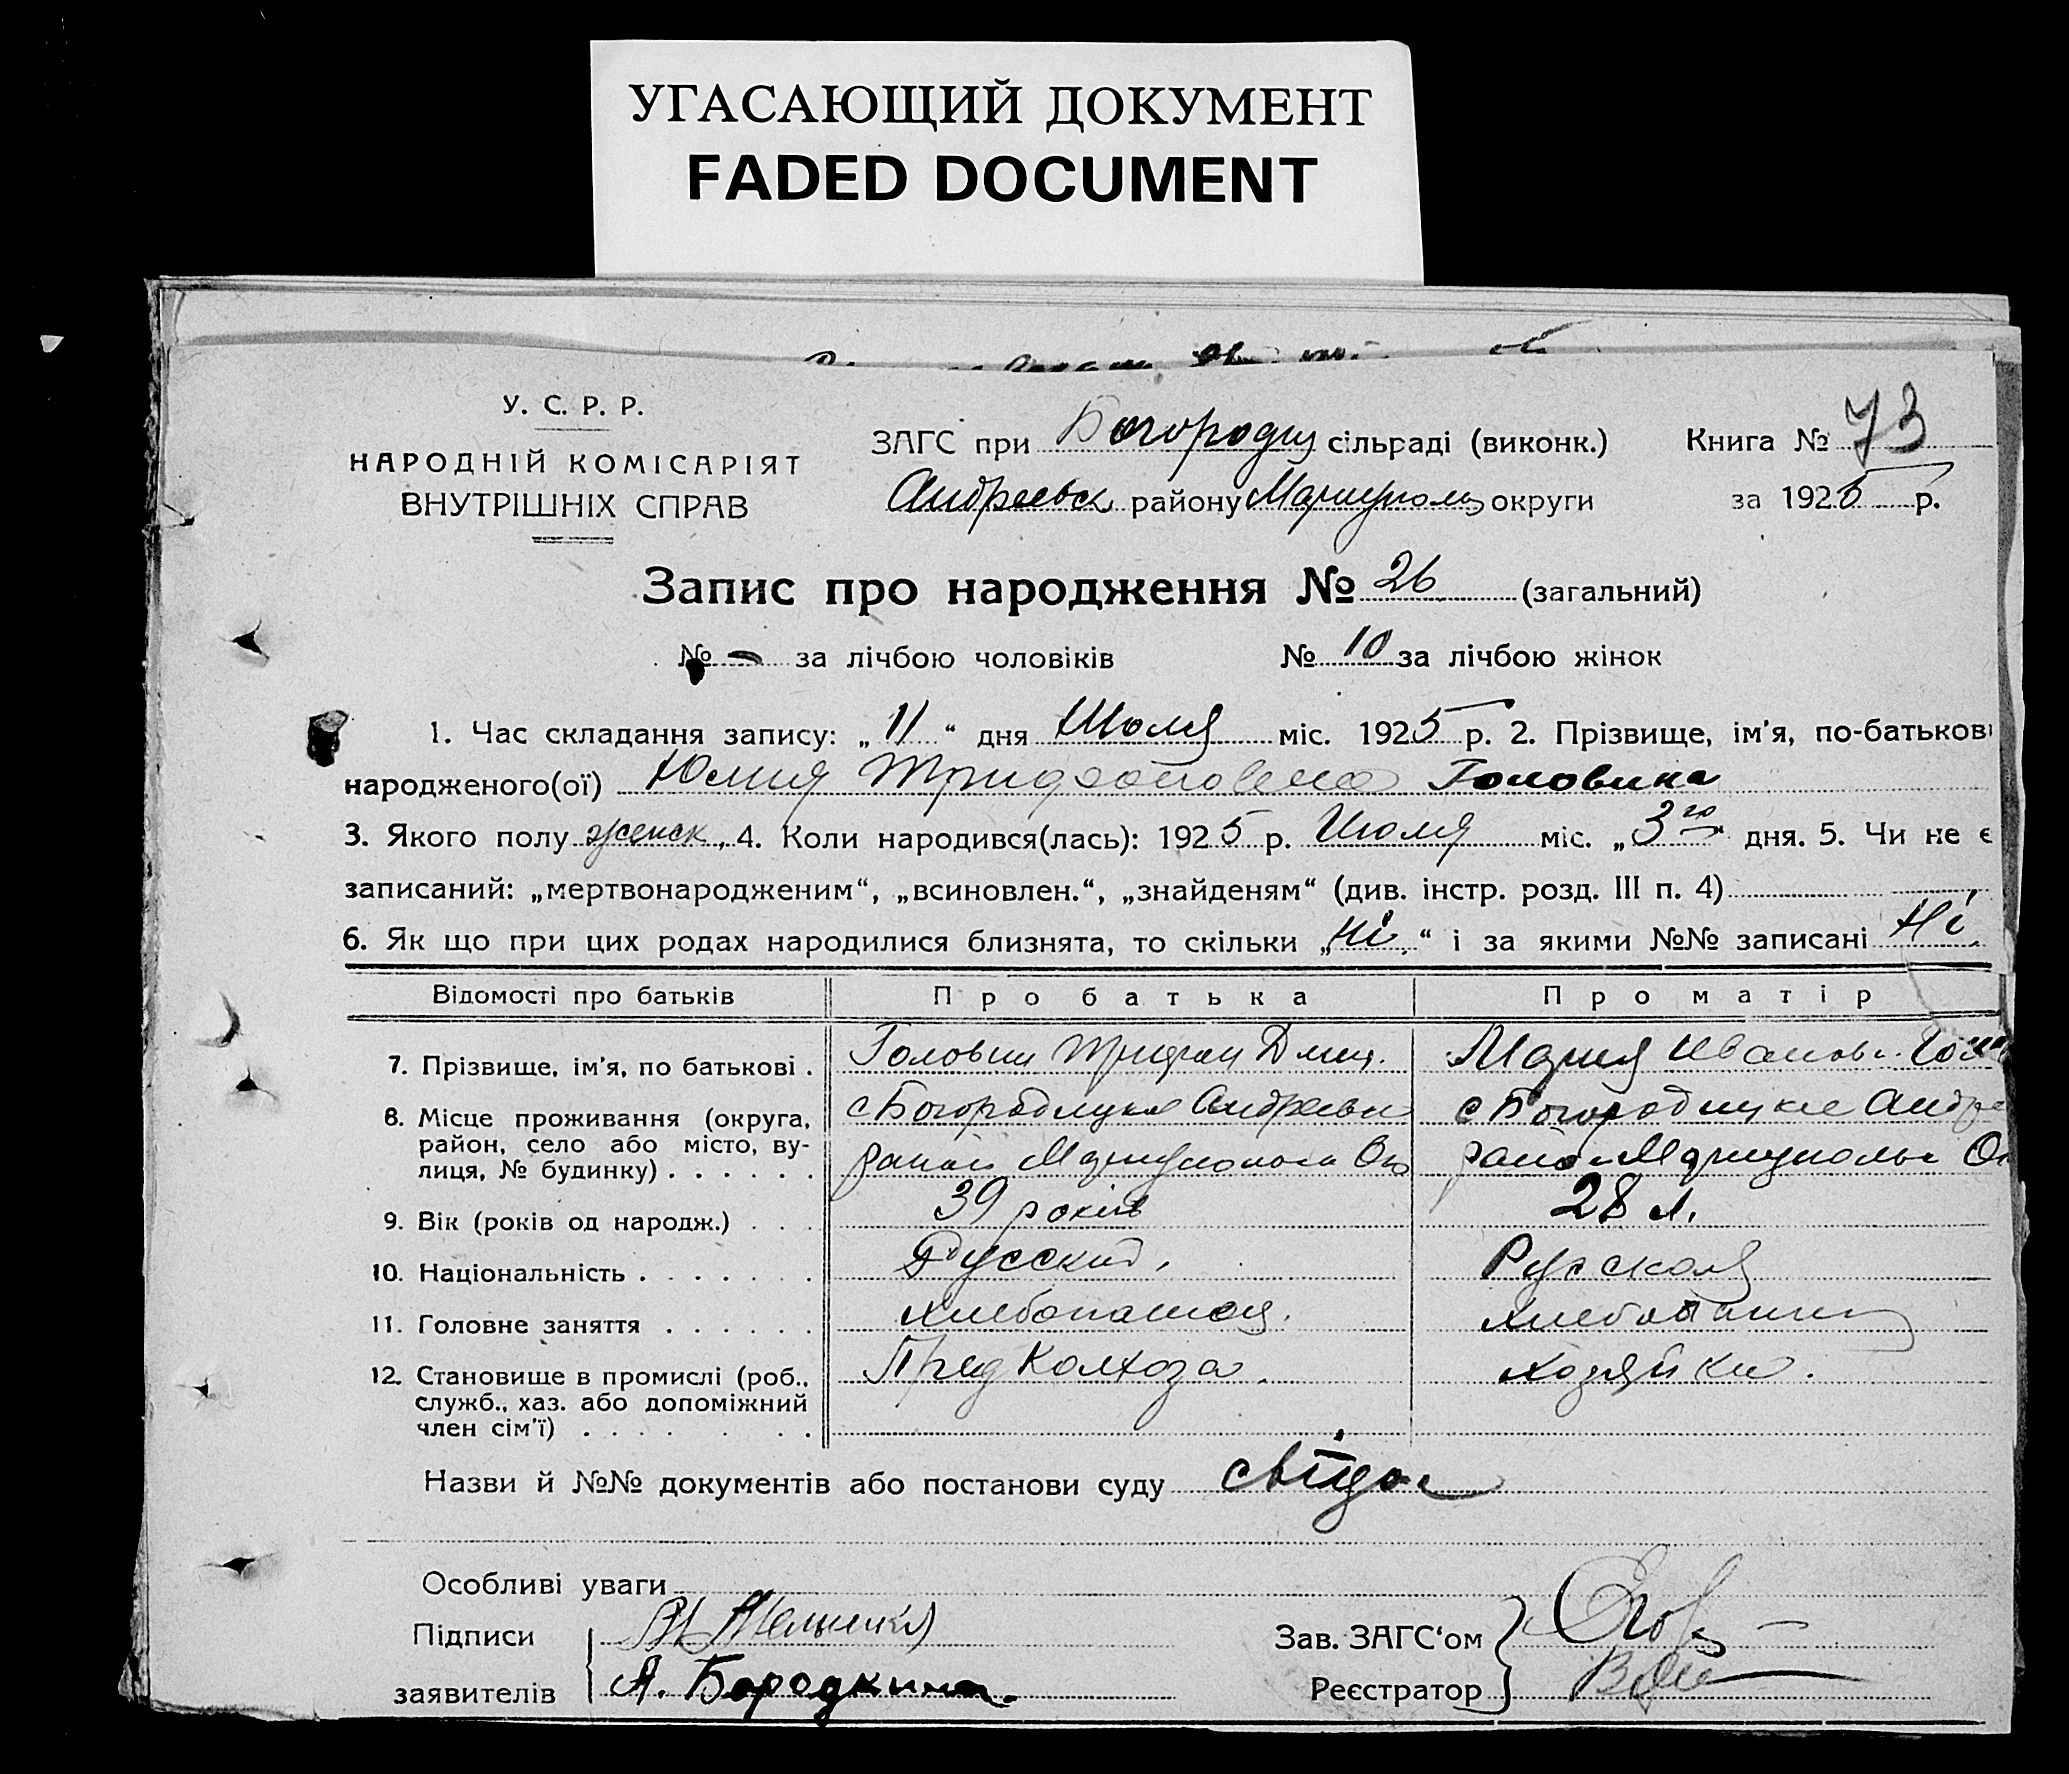 УГАСАЮЩИЙ ДОКУМЕНТ
FADED DOCUMENT
У. С. Р. Р.
НАРОДНІЙ КОМІСАРІЯТ
ВНУТРІШНІХ СПРАВ
ЗАГС при Богородиц сільраді (виконк.) Книга № 73
Андреевск району Мариуполь округи за 1925 р.
Запис про народження № 26 (загальний)
№ - за лічбою чоловіків № 10 за лічбою жінок
1. Час складання запису: „11“ дня Июля міс. 1925 р. 2. Прізвище, ім'я, по-батькові
народженого(ої) Юлия Трифоновна Головина
3. Якого полу женск, 4. Коли народився(лась): 1925 р. Июля міс. „3го“ дня. 5. Чи не є
записаний: „мертвонародженим“, „всиновлен.“, „знайденям“ (див. інстр. розд. III п. 4)
6. Як що при цих родах народилися близнята, то скільки „Ні.“ і за якими №№ записані Ні.
Відомості про батьків Про батька Про матір
7. Прізвище, ім'я, по батькові . Головин Трифон Дмит. Мария Иванов. Гол
8. Місце проживання (округа, с Богородицкое Андреевск с Богородицкое Андре
район, село або місто, ву-
лиця, № будинку) . . . . . . район Мариупольск Ок район Мариупольск Ок
9. Вік (років од народж.) . . . 39 років 28 л.
10. Національність . . . . . . . Русский. Русская
11. Головне заняття . . . . . . хлебопашец. хлебопашец
12. Становище в промислі (роб., Пред Колхоза. хозяйка.
служб., хаз. або допоміжний
член сім'ї) . . . . . . .
Назви й №№ документів або постанови суду свідок
Особливі уваги
Підписи М Мельника Зав. ЗАГС'ом
заявителів А. Бородкина. Реєстратор